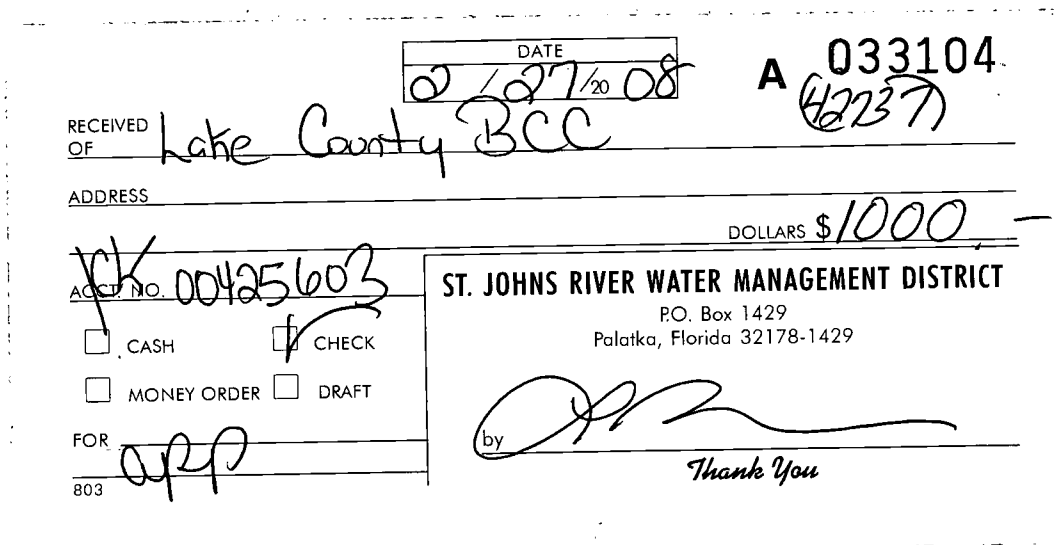 DATE
2/27/2008
A 033104
42737
RECEIVED OF Lake County BCC
ADDRESS
DOLLARS $1000 —
ck
ACCT. NO. 00425603
CASH CHECK
MONEY ORDER DRAFT
FOR app
803
ST. JOHNS RIVER WATER MANAGEMENT DISTRICT
P.O. Box 1429
Palatka, Florida 32178-1429
by
Thank You